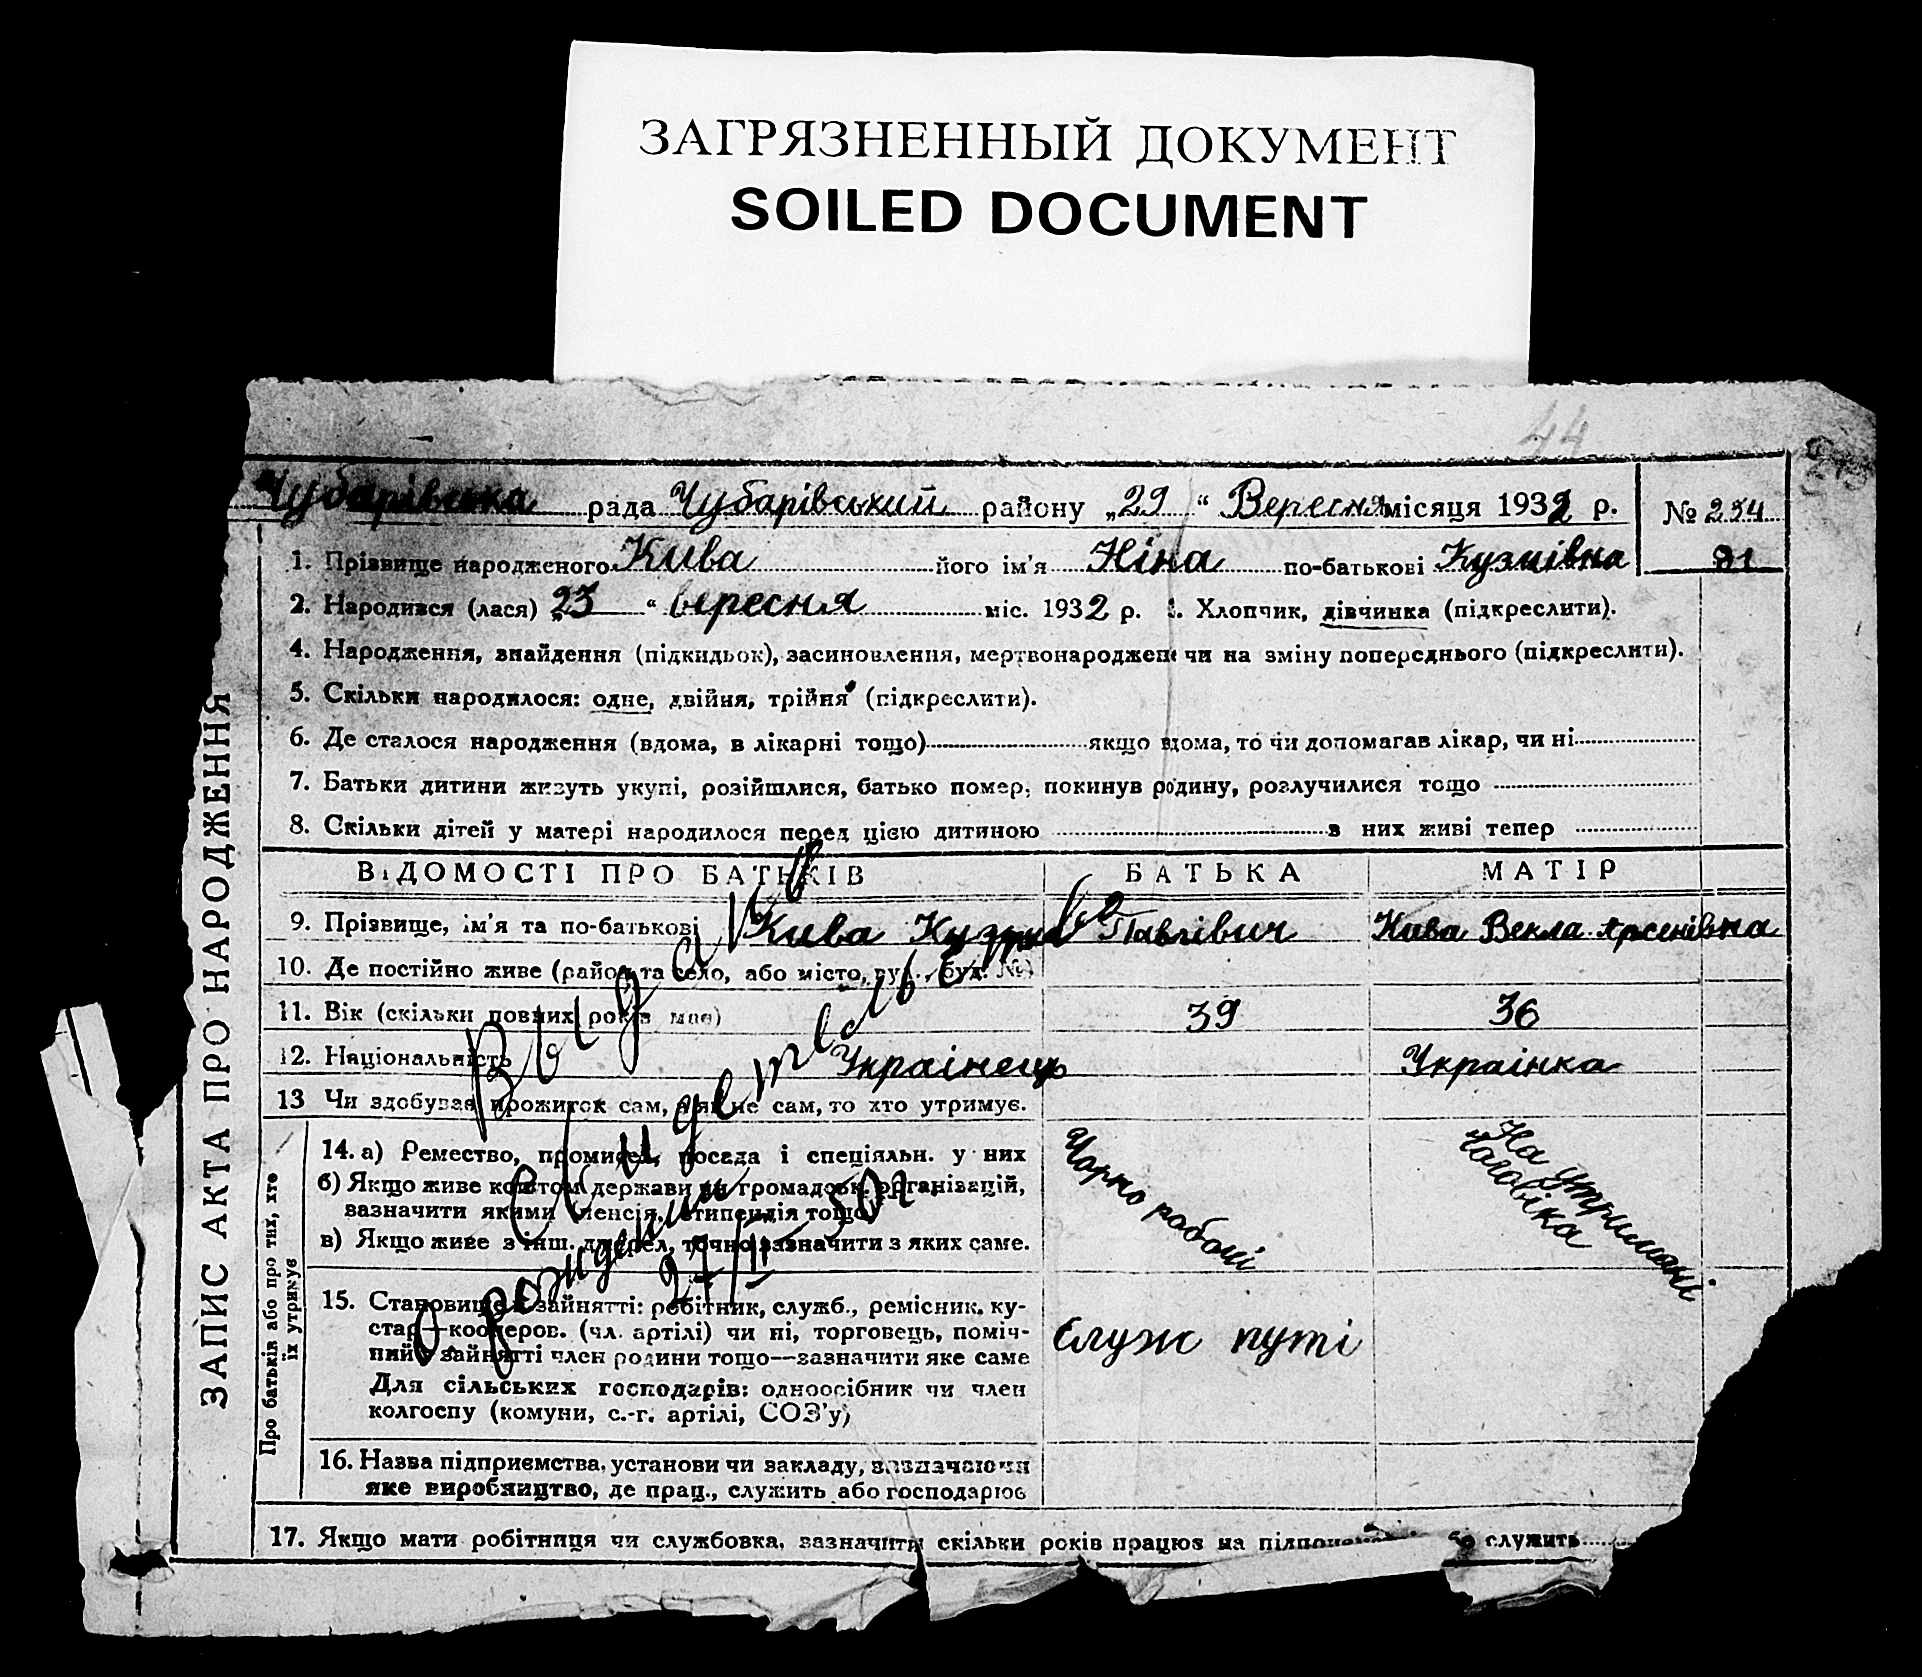 ЗАГРЯЗНЕННЫЙ ДОКУМЕНТ
SOILED DOCUMENT
44
Чубарівська рада Чубарівський району „29“ Вересня місяця 1932 р. № 254
1. Прізвище народженого Кива його ім'я Ніна по-батькові Кузмівна 91
2. Народився (лася) „23“ вересня міс. 1932 р. 3. Хлопчик, дівчинка (підкреслити).
4. Народження, знайдення (підкидьок), засиновлення, мертвонароджен чи на зміну попереднього (підкреслити).
5. Скільки народилося: одне, двійня, трійня (підкреслити).
6. Де сталося народження (вдома, в лікарні тощо) якщо вдома, то чи допомагав лікар, чи ні
7. Батьки дитини живуть укупі, розійшлися, батько помер, покинув родину, розлучилися тощо
8. Скільки дітей у матері народилося перед цією дитиною в них живі тепер
ВІДОМОСТІ ПРО БАТЬКІВ БАТЬКА МАТІР
9. Прізвище, ім'я та по-батькові Кива Кузма Павлівич Кива Векла Арсенівна
10. Де постійно живе (район та село, або місто, вул., буд. №)
11. Вік (скільки повних років має) 39 36
12. Національність Украінець Украінка
13 Чи здобуває прожиток сам, а як не сам, то хто утримує.
14. а) Ремество, промисел, посада і спеціяльн. у них Чорно рабочі На утримані чоловіка
б) Якщо живе коштом держави чи громадськ. організацій,
зазначити якими пенсія, стипендія тощо
в) Якщо живе з інш. джерел, точно зазначити з яких саме.
15. Становище в зайнятті: робітник, служб., ремісник, ку-
стар—кооперов. (чл. артілі) чи ні, торговець, поміч- Служ путі
ний в зайнятті член родини тощо—зазначити яке саме
Для сільських господарів: одноосібник чи член
колгоспу (комуни, с.-г. артілі, СОЗ'у)
16. Назва підприємства, установи чи закладу, зазначаючи
яке виробництво, де прац., служить або господарює
17. Якщо мати робітниця чи службовка, зазначити скільки років працює на служить
ЗАПИС АКТА ПРО НАРОДЖЕННЯ
Про батьків або про тих, хто
їх утримує
Выдано
Свидетельство
о рождении
27/II